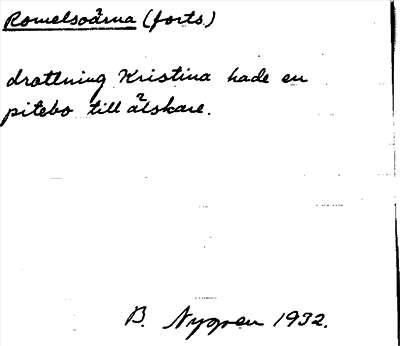 Romelsoärna (forts.)
drottning Kristina hade en
pitebo till älskare.
B. Nygren 1932.